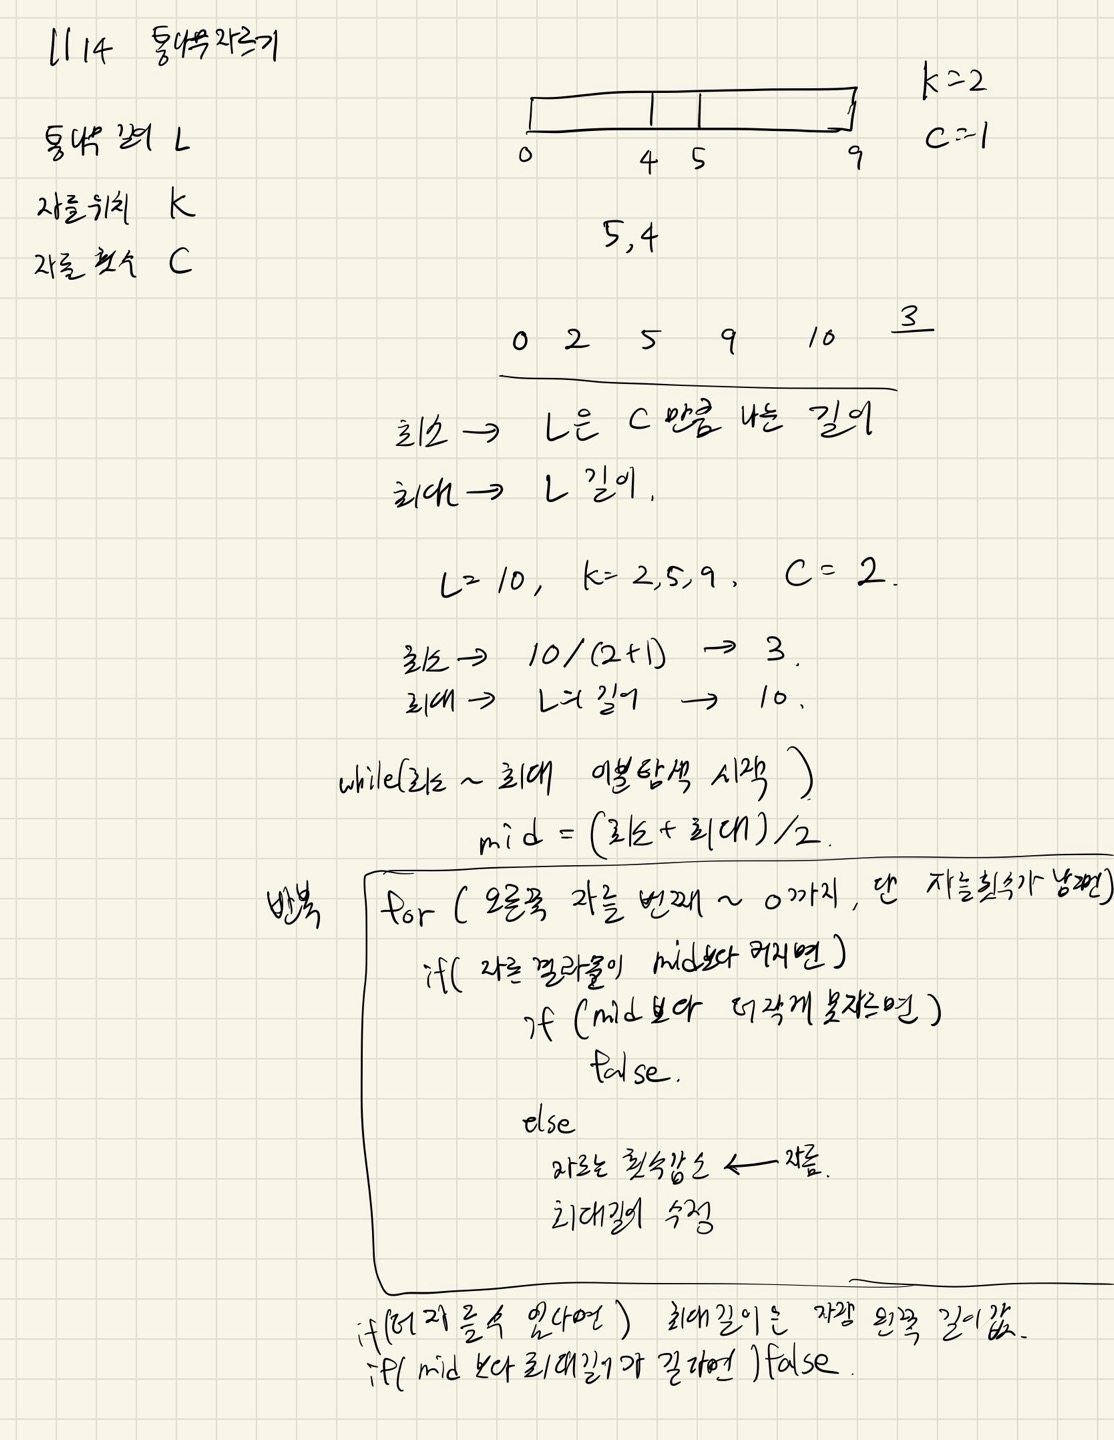 1114 통나무 자르기
k=2
C=1
통나무 길이 L
0 4 5 9
자를 위치 K
5,4
자를 횟수 C
3
0 2 5 9 10
최소 → L은 C 만큼 나눈 길이
최대 → L 길이.
L= 10, k= 2,5,9, C= 2.
최소 → 10/(2+1) → 3.
최대 → L의 길이 → 10.
while(최소 ~ 최대 이분탐색 시작)
mid = (최소+최대)/2.
반복
for ( 오른쪽 자를 번째 ~ 0까지, 단 자를 횟수가 남으면)
if( 자른 결과물이 mid보다 커지면)
if (mid 보다 더 작게 못자르면)
false.
else
자르는 횟수 감소 ← 자름.
최대길이 수정
if(더 자를 수 있다면) 최대길이는 가장 왼쪽 길이값.
if( mid 보다 최대길이가 길다면)false.